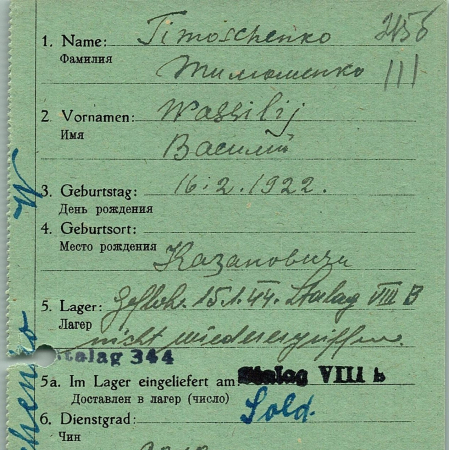 1. Name: Timoschenko
Фамилия Тимошенко
III
2. Vornamen: Wassilij
Имя Василий
3. Geburtstag: 16.2.1922.
День рождения
4. Geburtsort:
Место рождения Казановичи
5. Lager: Gefloh. 15.1.44. Stalag VIII B
Лагерь nicht wiederergriffen.
Stalag 344
5a. Im Lager eingeliefert am Stalag VIII b
Доставлен в лагерь (число)
6. Dienstgrad: Sold.
Чин